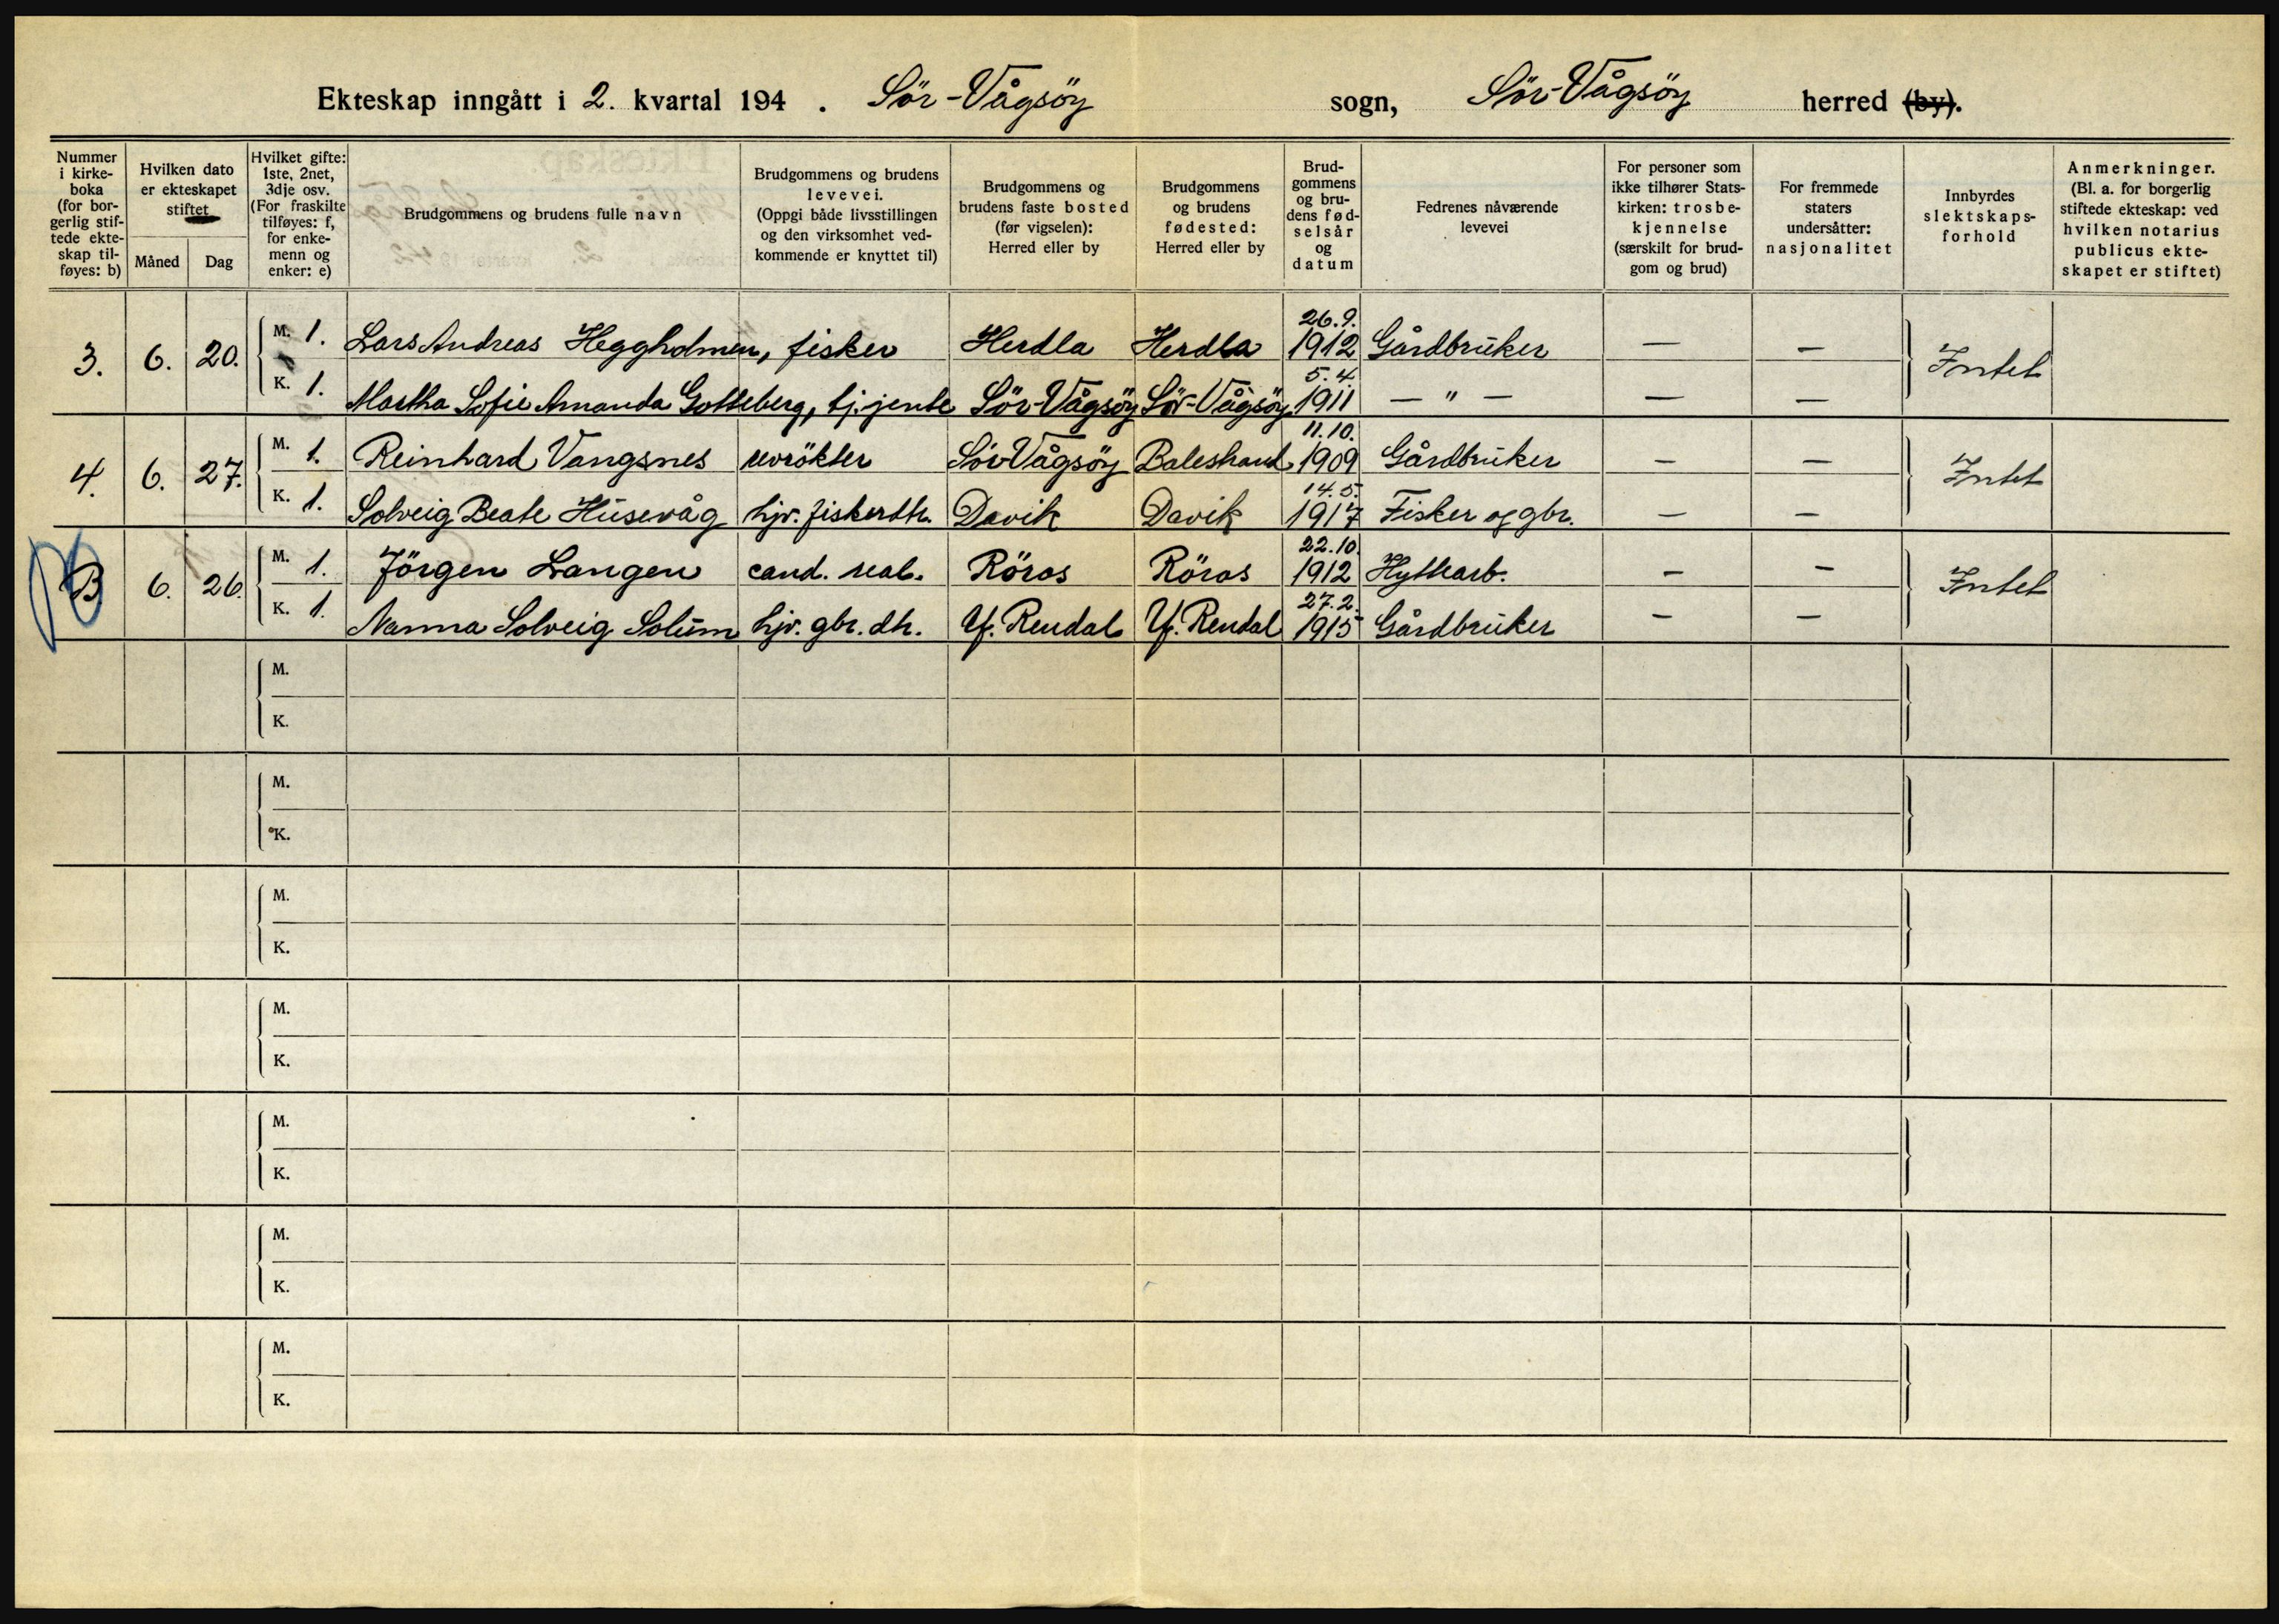 Ekteskap inngått i 2. kvartal 194 . Sör-Vågsöy sogn, Sör-Vågsöy herred (by).
Nummer i kirke- boka (for bor- gerlig stif- tede ekte- skap til- føyes: b)
Hvilken dato er ekteskapet stiftet
Måned Dag
Hvilket gifte: 1ste, 2net, 3dje osv. (For fraskilte tilføyes: f, for enke- menn og enker: e)
Brudgommens og brudens fulle navn
Brudgommens og brudens levevei. (Oppgi både livsstillingen og den virksomhet ved- kommende er knyttet til)
Brudgommens og brudens faste bosted (før vigselen): Herred eller by
Brudgommens og brudens fødested: Herred eller by
Brud- gommens og bru- dens fød- selsår og datum
Fedrenes nåværende levevei
For personer som ikke tilhører Stats- kirken: trosbe- kjennelse (særskilt for brud- gom og brud)
For fremmede staters undersåtter: nasjonalitet
Innbyrdes slektskaps- forhold
Anmerkninger. (Bl. a. for borgerlig stiftede ekteskap: ved hvilken notarius publicus ekte- skapet er stiftet)
3. 6. 20. M. 1. Lars Andreas Heggholmen, fisker Herdla Herdla 26.9. 1912 Gårdbruker — — Intet
K. 1. Martha Sofie Amanda Gotteberg, tj. jente Sör-Vågsöy Sör-Vågsöy 5.4. 1911 — " — — —
4. 6. 27. M. 1. Reinhard Vangsnes revrökter Sör-Vågsöy Balestrand 11.10. 1909 Gårdbruker — — Intet
K. 1. Solveig Beate Husevåg hjv. fiskerdtr. Davik Davik 14.5. 1917 Fisker og gbr. — —
B 6. 26. M. 1. Jörgen Langen cand. real. Röros Röros 22.10. 1912 Hyttearb. — — Intet
K. 1. Nanna Solveig Solum hjv. gbr. dtr. Y. Rendal Y. Rendal 27.2. 1915 Gårdbruker — —
M.
K.
M.
K.
M.
K.
M.
K.
M.
K.
M.
K.
M.
K.